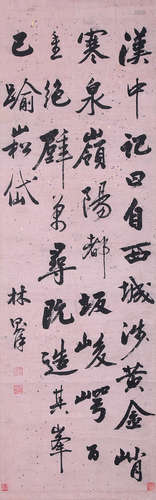 漢中記曰自西城涉黃金峭
寒泉嶺陽都坂峻崿百
重絕壁萬尋既造其峯
已踰崧岱
林